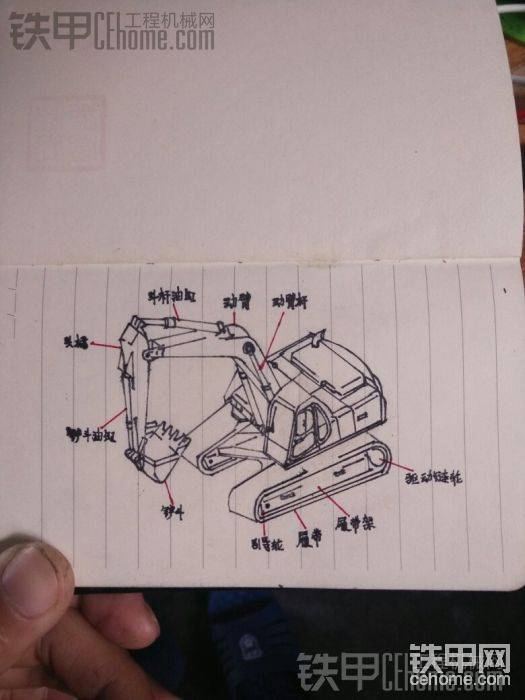 铁甲 工程机械网
CEhome.com
斗杆油缸
动臂
动臂杆
铲斗油缸
铲斗
引导轮
履带
履带架
驱动链轮
铁甲网
cehome.com
铁甲网
cehome.com